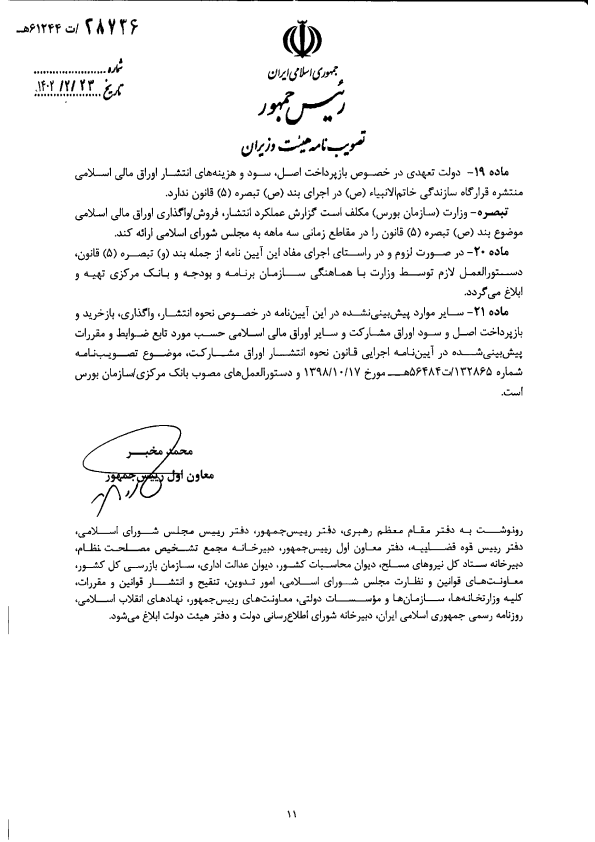 ۲۸۷۲۶ /ت ۶۱۲۴۴هـ
جمهوری اسلامی ایران
شماره
رئیس جمهور
تاریخ ۱۴۰۲/۲/۲۳
تصویب نامه هیئت وزیران
ماده ۱۹- دولت تعهدی در خصوص بازپرداخت اصل، سود و هزینه‌های انتشار اوراق مالی اسلامی
منتشره قرارگاه سازندگی خاتم‌الانبیاء (ص) در اجرای بند (ص) تبصره (۵) قانون ندارد.
تبصره- وزارت (سازمان بورس) مکلف است گزارش عملکرد انتشار، فروش/واگذاری اوراق مالی اسلامی
موضوع بند (ص) تبصره (۵) قانون را در مقاطع زمانی سه ماهه به مجلس شورای اسلامی ارائه کند.
ماده ۲۰- در صورت لزوم و در راستای اجرای مفاد این آیین نامه از جمله بند (و) تبصره (۵) قانون،
دستورالعمل لازم توسط وزارت با هماهنگی سازمان برنامه و بودجه و بانک مرکزی تهیه و
ابلاغ می‌گردد.
ماده ۲۱- سایر موارد پیش‌بینی‌نشده در این آیین‌نامه در خصوص نحوه انتشار، واگذاری، بازخرید و
بازپرداخت اصل و سود اوراق مشارکت و سایر اوراق مالی اسلامی حسب مورد تابع ضوابط و مقررات
پیش‌بینی‌شده در آیین‌نامه اجرایی قانون نحوه انتشار اوراق مشارکت، موضوع تصویب‌نامه
شماره ۱۳۲۸۶۵/ت۵۶۴۸۴هـ مورخ ۱۳۹۸/۱۰/۱۷ و دستورالعمل‌های مصوب بانک مرکزی/سازمان بورس
است.
محمد مخبر
معاون اول رییس‌جمهور
رونوشت به دفتر مقام معظم رهبری، دفتر رییس‌جمهور، دفتر رییس مجلس شورای اسلامی،
دفتر رییس قوه قضاییه، دفتر معاون اول رییس‌جمهور، دبیرخانه مجمع تشخیص مصلحت نظام،
دبیرخانه ستاد کل نیروهای مسلح، دیوان محاسبات کشور، دیوان عدالت اداری، سازمان بازرسی کل کشور،
معاونت‌های قوانین و نظارت مجلس شورای اسلامی، امور تدوین، تنقیح و انتشار قوانین و مقررات،
کلیه وزارتخانه‌ها، سازمان‌ها و مؤسسات دولتی، معاونت‌های رییس‌جمهور، نهادهای انقلاب اسلامی،
روزنامه رسمی جمهوری اسلامی ایران، دبیرخانه شورای اطلاع‌رسانی دولت و دفتر هیئت دولت ابلاغ می‌شود.
۱۱